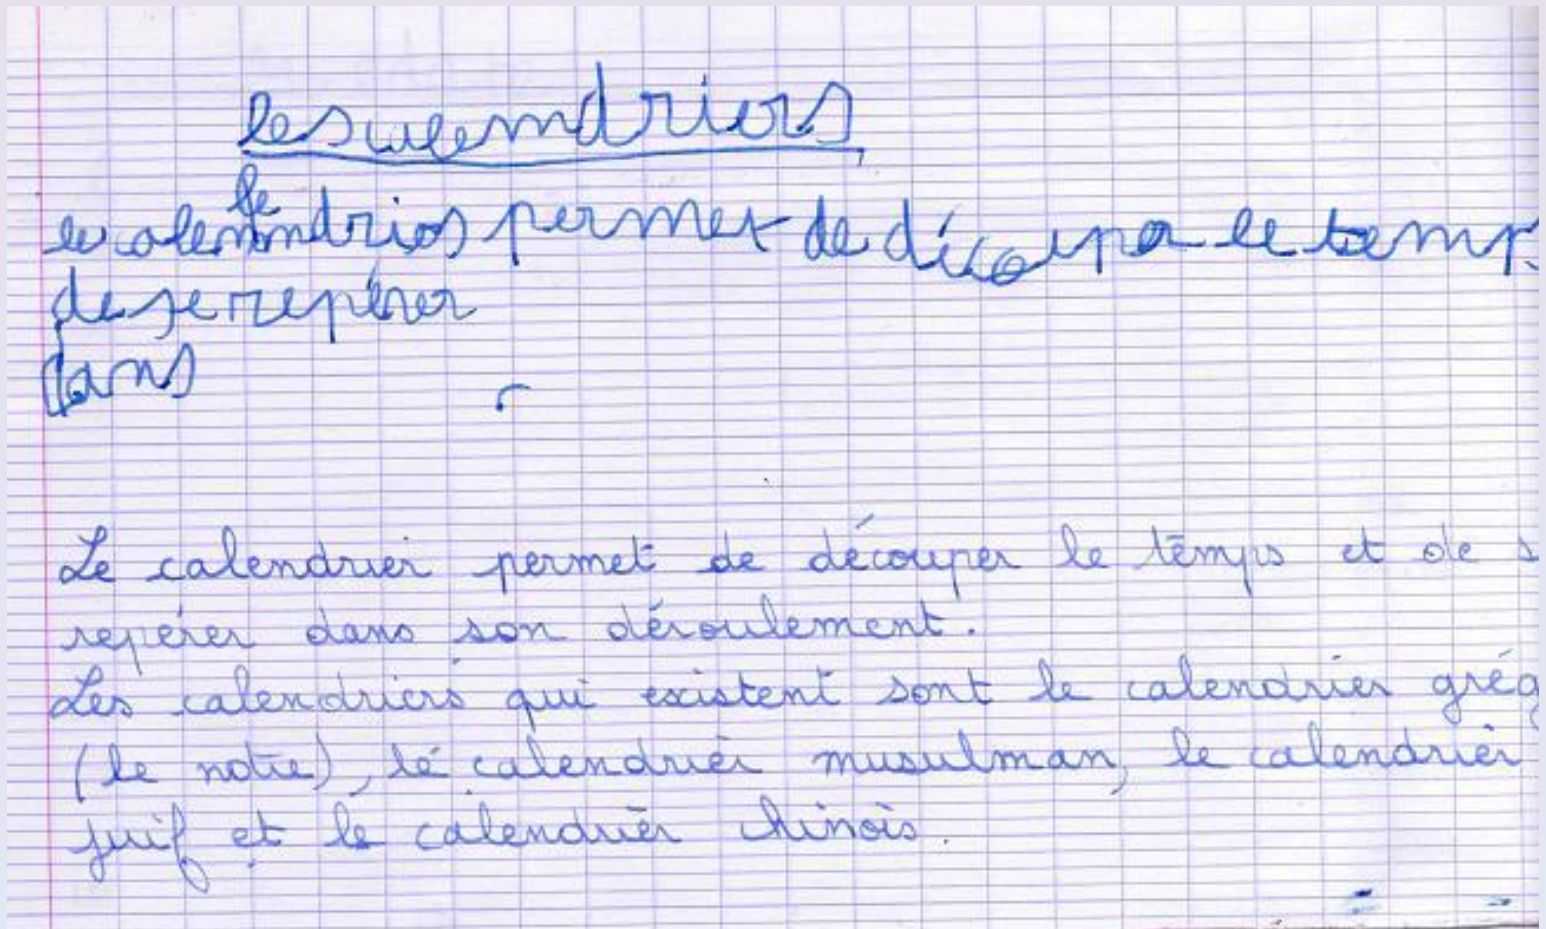 les calendriers
le calendrier permet de découper le temps
de se repérer
dans
Le calendrier permet de découper le temps et de s
repérer dans son déroulement.
Les calendriers qui existent sont le calendrier grég
(le notre), le calendrier musulman, le calendrier
juif et le calendrier chinois.